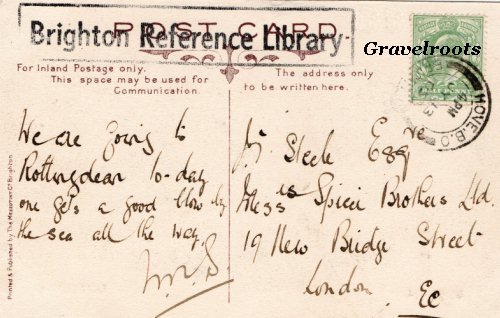 POST CARD.
Brighton Reference Library
Gravelroots
For Inland Postage only.
This space may be used for
Communication.
The address only
to be written here.
HALFPENNY
HOVE B.O.
We are going to
Rottingdean to-day
one gets a good blow by
the sea all the way.
Steele Esq
Messrs Spicer Brothers Ltd.
19 New Bridge Street
London
EC
Printed & Published by The Mezzotint Co Brighton